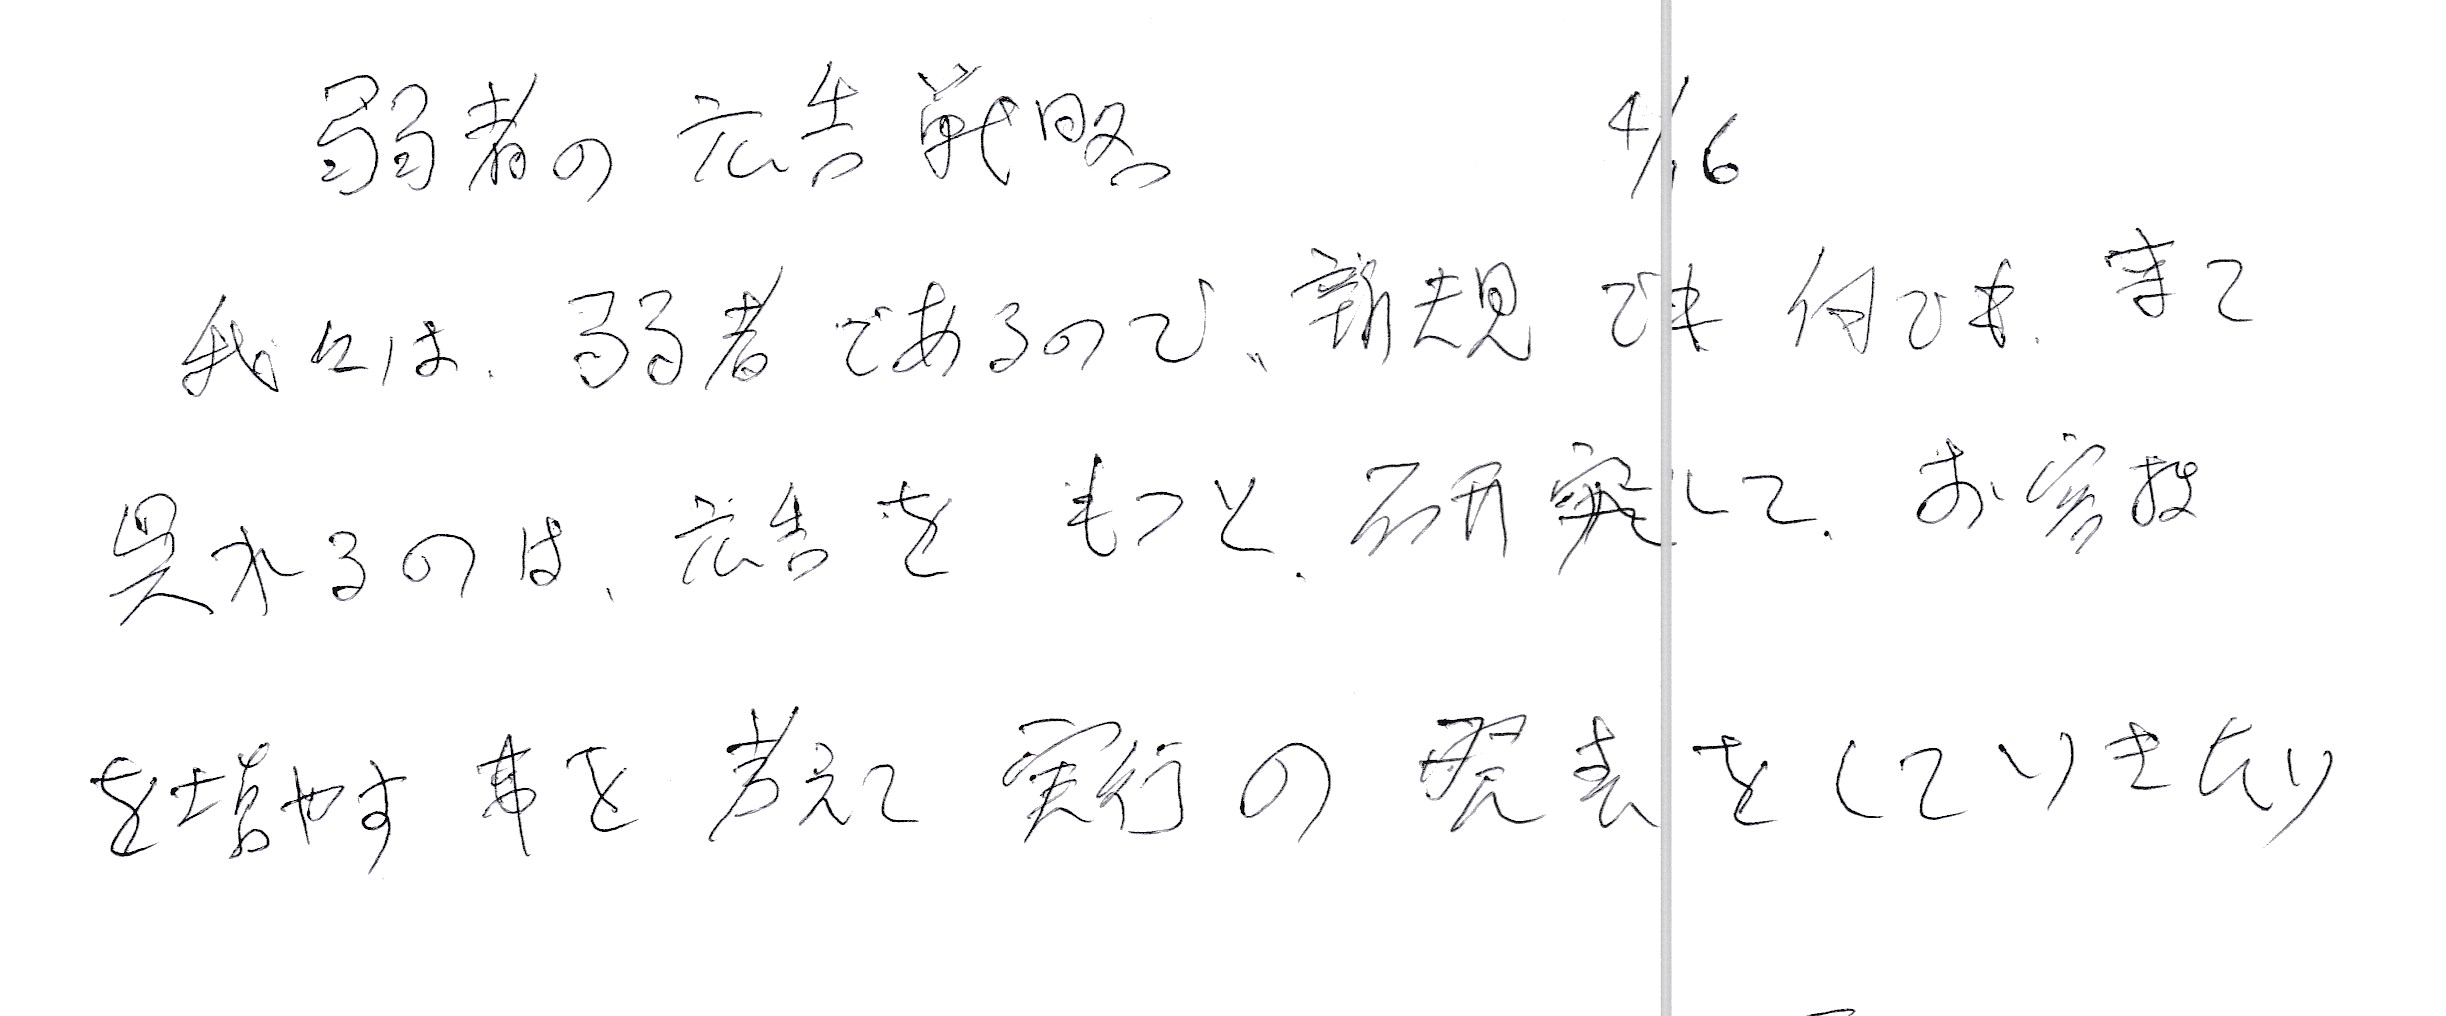 弱者の広告戦略 4/16
我々は、弱者であるので、新規でも何でも、来て
呉れるのは、広告をもっと、研究して、お客様
を増やす事を考えて実行の発表をしていきたい